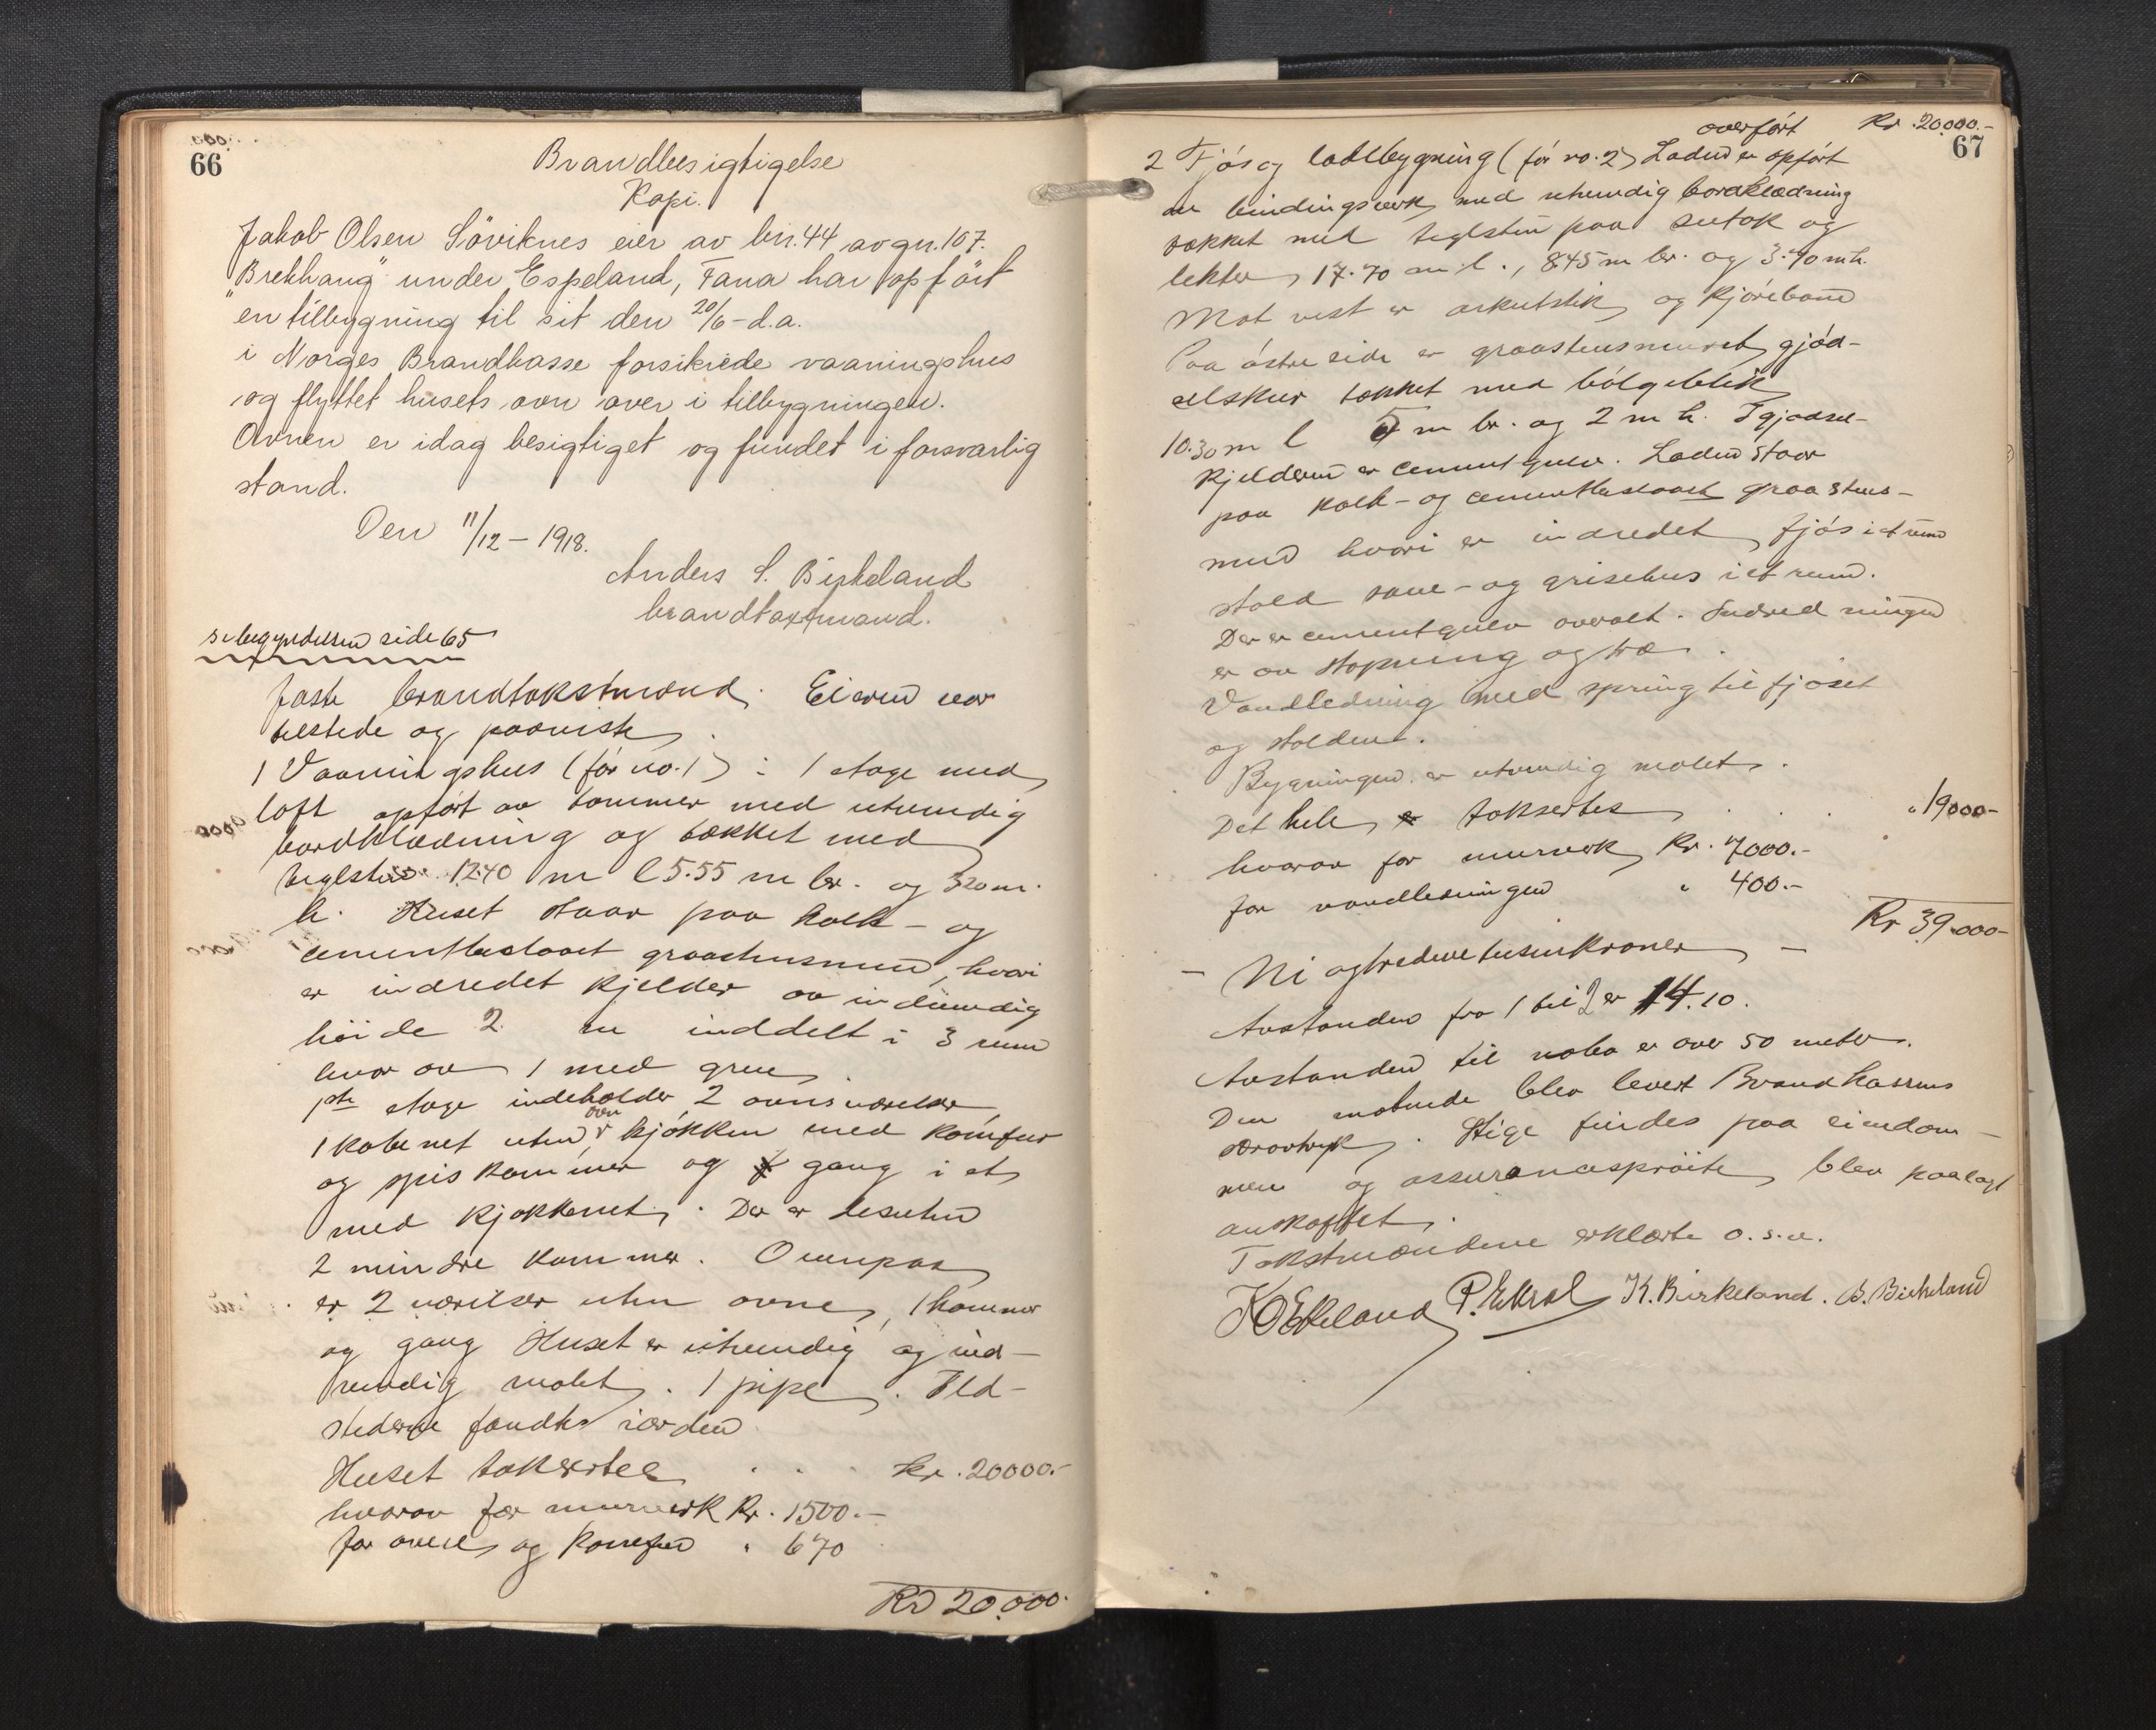 66
Brandbesigtigelse
Kopi.
Jakob Olsen Söviknes eier av bn. 44 av gn. 107.
"Brekhaug" under Espeland, Fana har opfört
en tilbygning til sit den 20/6 - d.a.
i Norges Brandkasse forsikrede vaaningshus
og flyttet husets ovn over i tilbygningen.
Ovnen er idag besigtiget og fundet i forsvarlig
stand.
Den 11/12 - 1918.
Anders S. Birkeland
brandtaxtmand.
se begyndelsen side 65
faste brandtakstmænd. Eieren var
tilstede og paaviste
1 Vaaningshus (för no. 1) : 1 etage med
loft opfört av tømmer med utvendig
bordklædning og tækket med
teglsten 12.40 m l 5.55 m br. og 3.20 m.
h. Huset staar paa kalk- og
cementbeslaaet graastensmur, hvori
er indredet kjelder av indvendig
höide 2 m inddelt i 3 rum
hvor av 1 med grue
1ste etage indeholder 2 ovnsværelser
1 kabinet uten ovn kjökken med komfur
og spiskammer og gang i et
med kjøkkenet. Der er desuten
2 mindre kammer. Ovenpaa
er 2 værelser uten ovne, 1 kammer
og gang Huset er utvendig og ind-
vendig malet. 1 pipe. Ild-
stederne fandtes i orden
Huset taksertes . . . kr. 20000.-
hvorav for murverk Kr. 1500.-
for ovne og komfur " 670
Kr 20.000.
67
overfört Kr. 20.000.-
2 Fjös og ladebygning (för no. 2) Laden er opfört
av bindingsverk med utvendig bordklædning
tækket med teglsten paa sutak og
lekter 17.70 m l., 8.45 m br. og 3.70 m h.
Mot vest er arkutstik og kjörebane
Paa östre side er graastensmuret gjöd-
selskur tækket med bölgeblik
10.30 m l 5 m br. og 2 m h. I gjødsel-
kjelderen er cementgulv. Laden staar
paa kalk- og cementbeslaaet graastens-
mur hvori er indredet fjös i et rum
stald saue- og grisehus i et rum.
Der er cementgulv overalt. Indredningen
er av støpning og træ.
Vandledning med spring til fjøset
og stalden.
Bygningen er utvendig malet.
Det hele taksertes . . . " 19000-
hvorav for murverk Kr. 7000.-
for vandledningen " 400.-
Kr 39.000-
- Ni og tredvetusinkroner -
Avstanden fra 1 til 2 er 14.10.
Avstanden til nabo er over 50 meter.
Den møtende blev levert Brandkassens
særavtryk. Stige findes paa eiendom-
men og assurancesprøite blev paalagt
anskaffet.
Takstmændene erklærte o.s.v.
K O Espeland P. Eikrol K. Birkeland. B. Birkeland